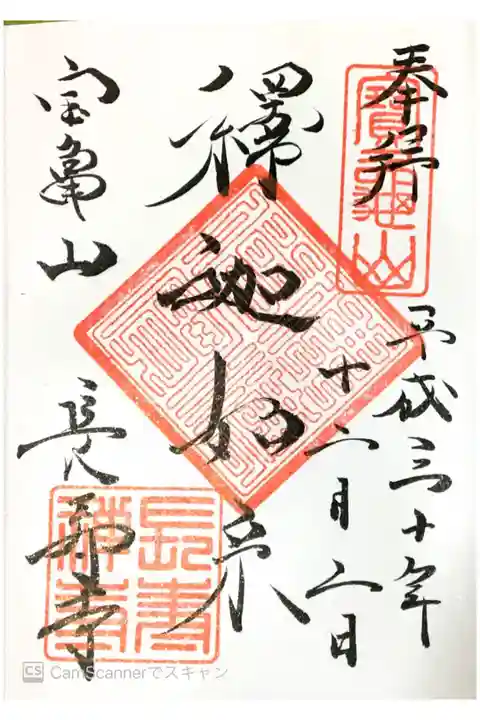 奉拝
寶龜山
平成三十年
十二月二日
釋迦如来
宝亀山 長寿寺
長壽
禪寺
CS CamScannerでスキャン